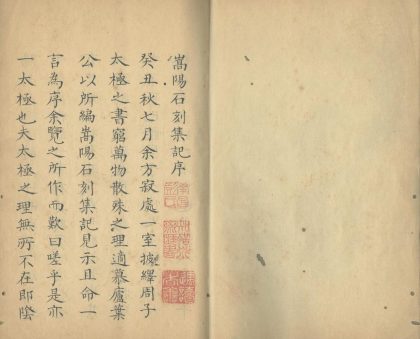 嵩陽石刻集記序
癸丑秋七月余方寂處一室披繹周子
太極之書窮萬物散殊之理適慕廬葉
公以所編嵩陽石刻集記見示且命一
言為序余覽之所作而歎曰嗟乎是亦
一太極也夫太極之理無所不在即陰